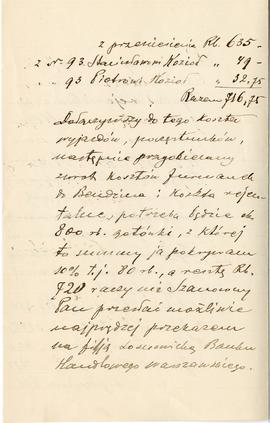 z przeniesienia Rb. 635 -
z nr 93 Stanisławowi Kozioł „ 49 -
„ 93 Piotrowi Kozioł „ 32,75
Razem 716,75
Doliczywszy do tego koszta
wyjazdów, poczęstunków,
następnie
zwrot kosztów
do Bendzina i koszta rejen-
talne, potrzeba będzie ok.
800 rb. gotówki, z której
to summy ja pokrywam
10% t.j. 80 rb., a resztę Rb.
720 raczy mi Szanowny
Pan przesłać możliwie
najprędzej przekazem
na filję Sosnowicką Banku
Handlowego warszawskiego.